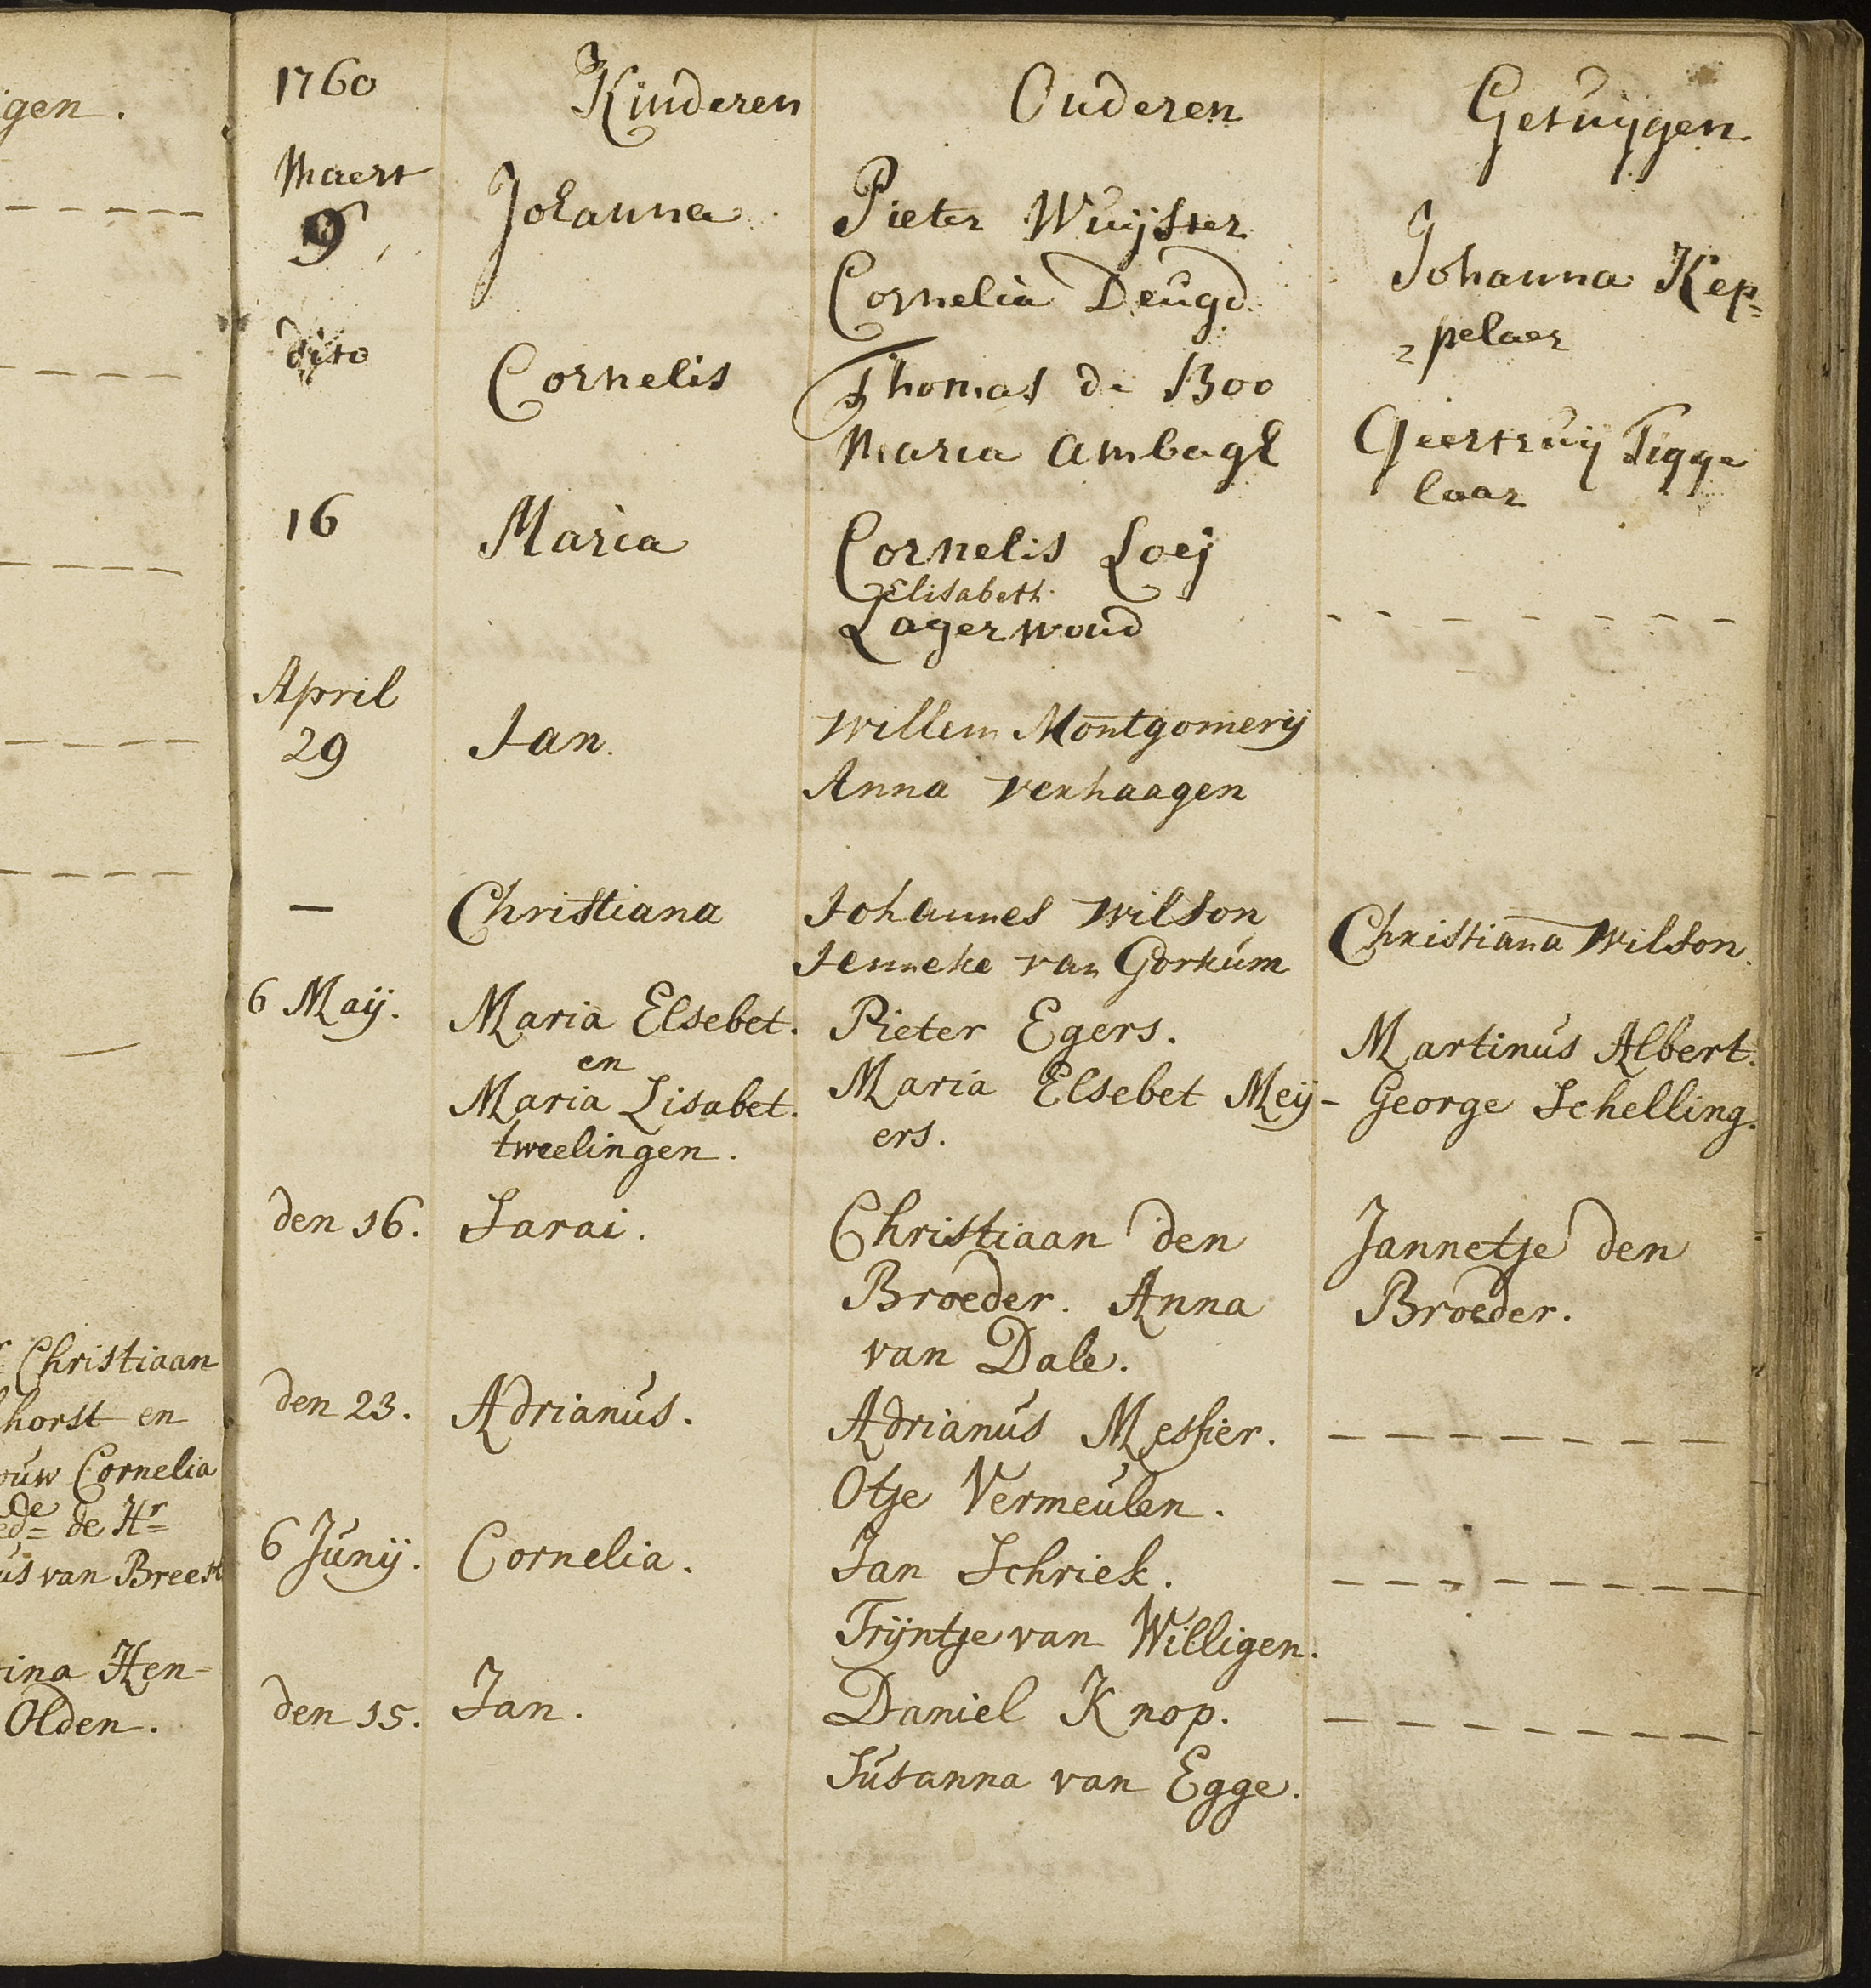 igen.
Christiaan
horst en
ouw Cornelia
de Hr
us van Breest
tina Hen-
Olden.
1760 Kinderen Ouderen Getuijgen
Maert
9 Johanna Pieter Wuijster
Cornelia Deugd Johanna Kep=
=pelaer
dito Cornelis Thomas de Boo
Maria Ambagt Geertruij Tigge
laar
16 Maria Cornelis Loeij
Elisabeth
Lagerwoud - - - - - - - -
April
29 Jan. Willem Montgomerij
Anna Verhaagen
— Christiana Johannes Wilson Christiana Wilson.
Jenneke van Gorkum
6 Maij. Maria Elsebet. Pieter Egers. Martinus Albert.
en
Maria Lisabet. Maria Elsebet Meij- George Schelling.
tweelingen. ers.
den 16. Sarai. Christiaan den Jannetje den
Broeder. Anna Broeder.
van Dale.
den 23. Adrianus. Adrianus Messier. - - - - - - - -
Otje Vermeulen.
6 Junij. Cornelia. Jan Schriek. - - - - - - - -
Trijntje van Willigen.
den 15. Jan. Daniel Knop. - - - - - - - -
Susanna van Egge.